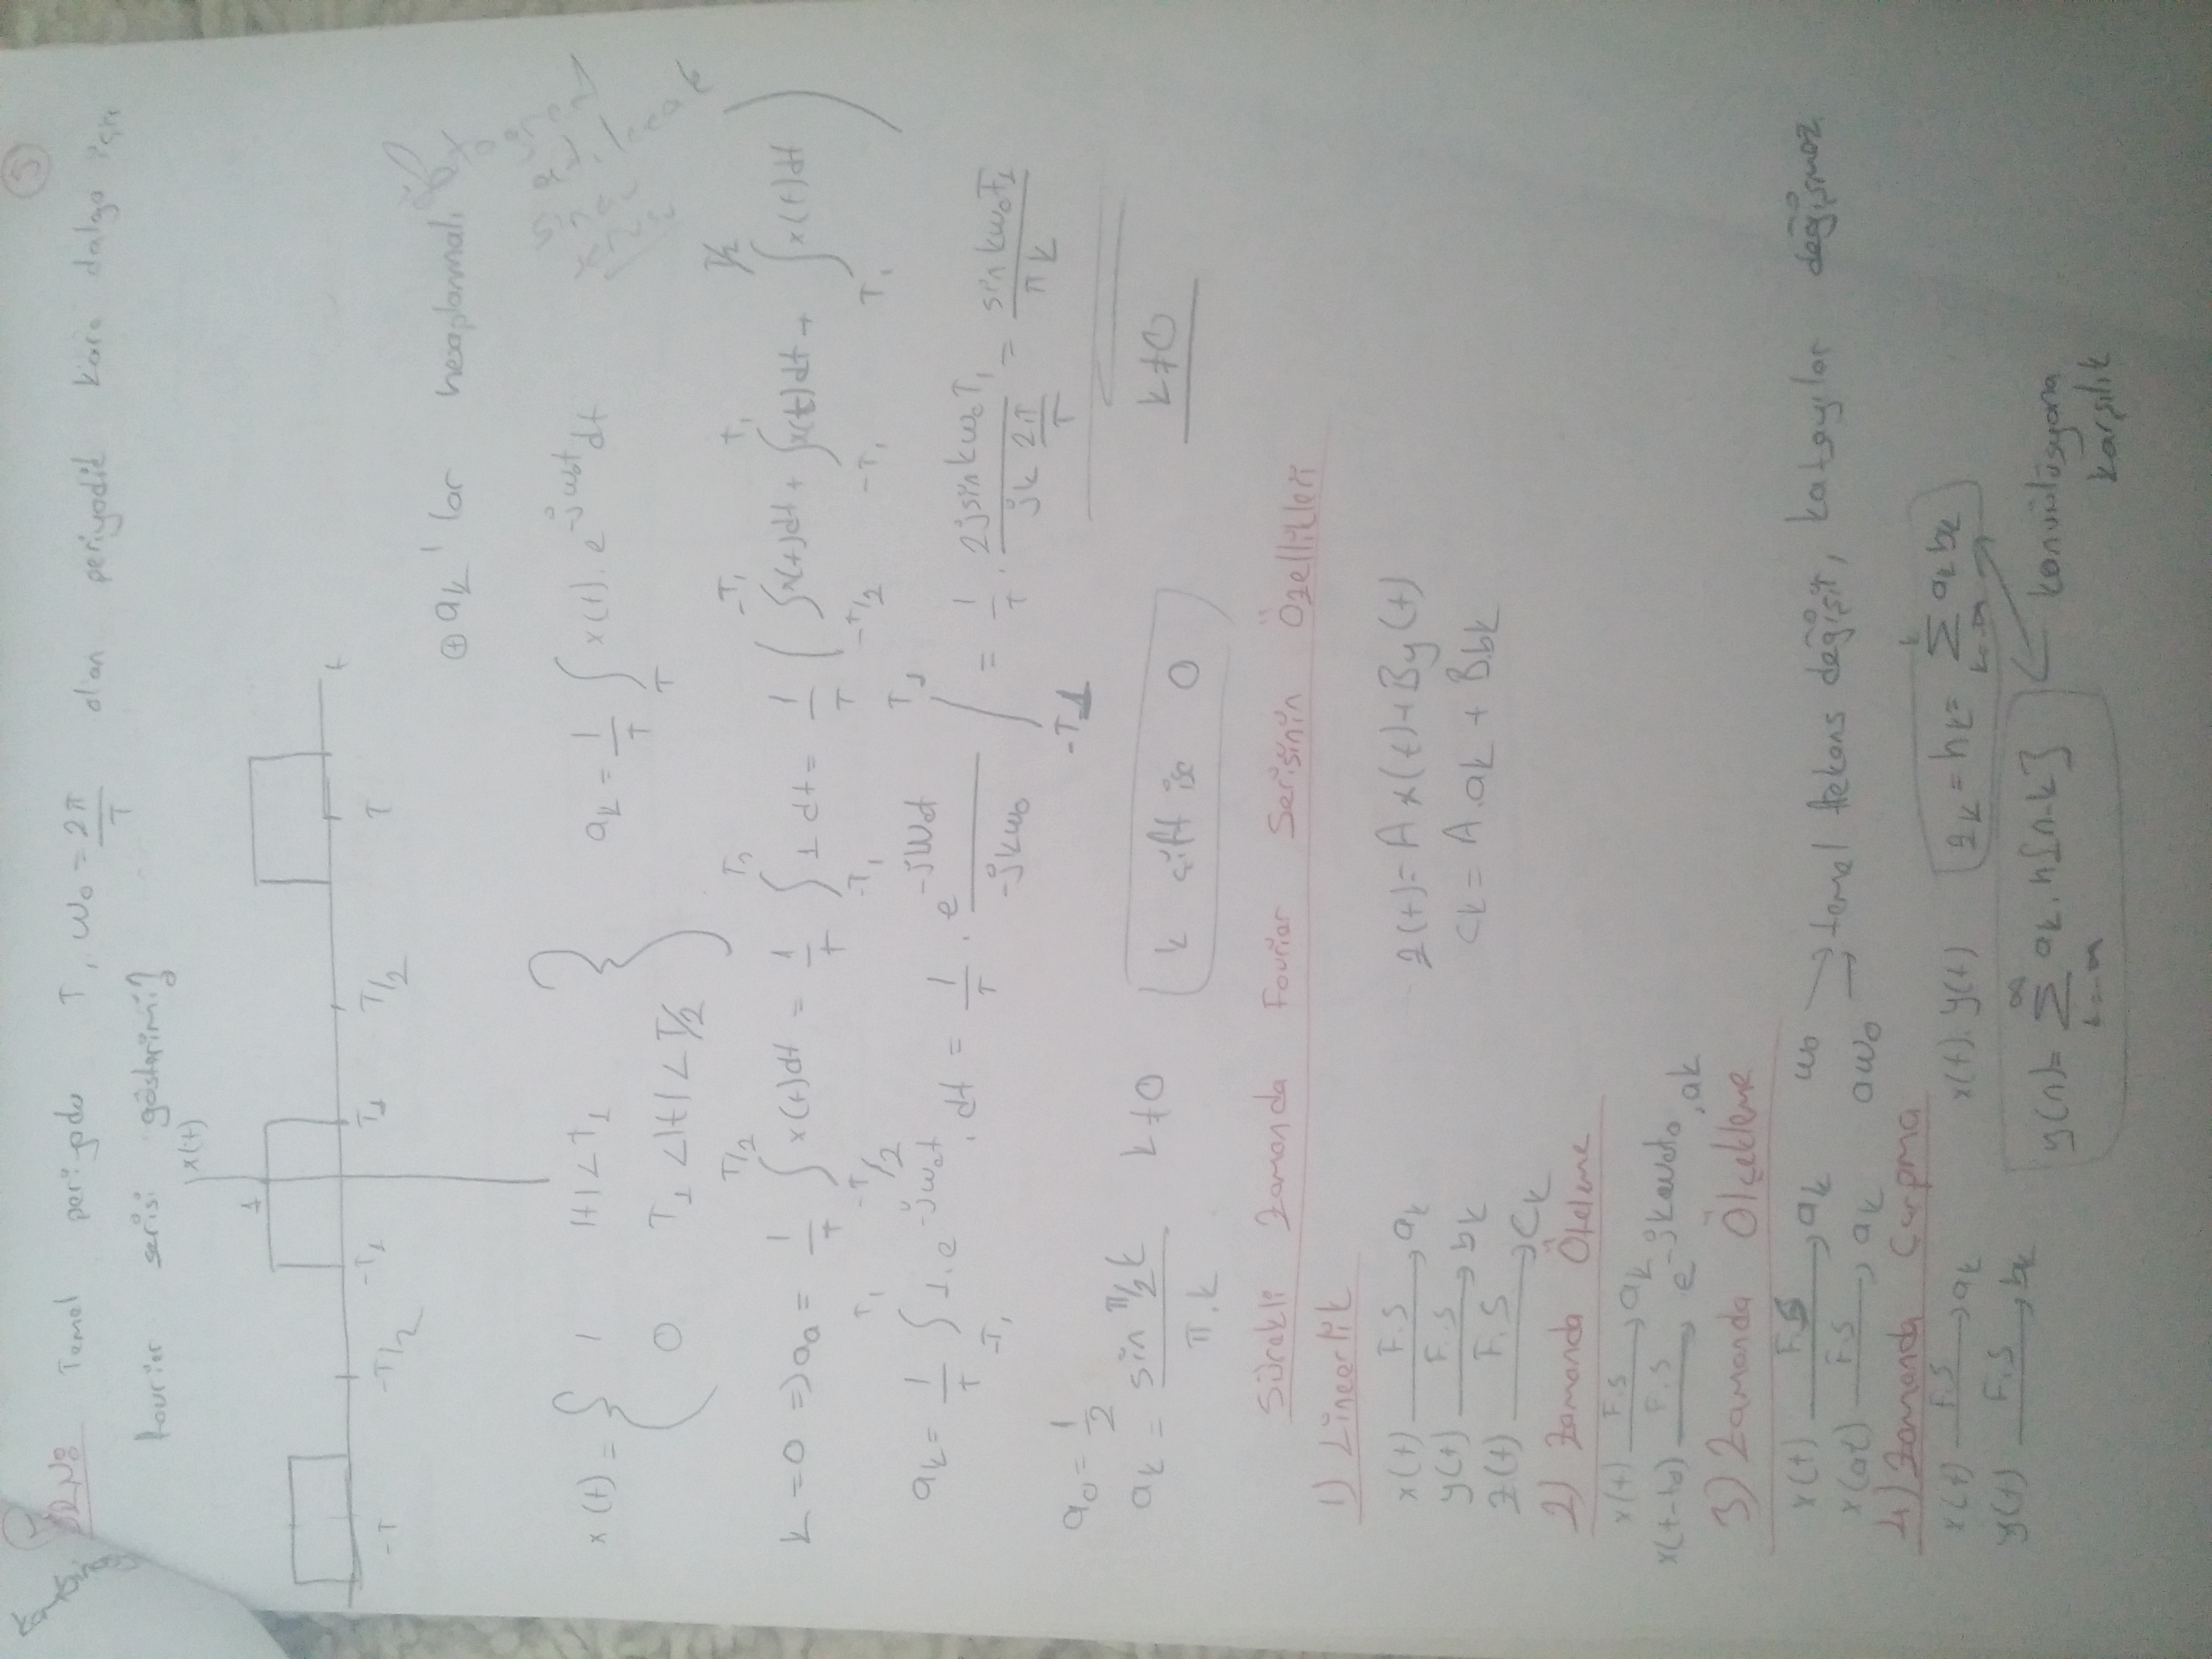 5
ÖRN:
Temel periyodu T, w₀ = 2π/T olan periyodik kare dalga için
fourier serisi gösterimi?
x(t)
1
-T -T/2 -T₁ T₁ T/2 T t
⊕ aₖ' lar hesaplanmalı
x(t) = { 1 |t| < T₁
0 T₁ < |t| < T/2 }
aₖ = 1/T ∫_T x(t). e^(-jw₀t) dt
k = 0 => a₀ = 1/T ∫_(-T/2)^(T/2) x(t)dt = 1/T ∫_(-T₁)^(T₁) 1 dt = 1/T ( ∫_(-T/2)^(-T₁) x(t)dt + ∫_(-T₁)^(T₁) x(t)dt + ∫_(T₁)^(T/2) x(t)dt )
aₖ = 1/T ∫_(-T₁)^(T₁) 1.e^(-jw₀t) . dt = 1/T . e^(-jw₀t) / -jkw₀ |_(-T₁)^(T₁) = 1/T . 2jsinkw₀T₁ / jk 2π/T = sinkw₀T₁ / πk
k≠0
a₀ = 1/2
aₖ = sin π/2 k / π.k k≠0 k çift ise 0
Sürekli Zamanda Fourier Serisinin Özellikleri
1) Lineerlik
x(t) F.S → aₖ z(t) = A x(t) + By(t)
y(t) F.S → bₖ cₖ = A.aₖ + B.bₖ
z(t) F.S → cₖ
2) Zamanda Öteleme
x(t) F.S → aₖ
x(t-t₀) F.S → e^(-jkw₀t₀) . aₖ
3) Zamanda Ölçekleme
x(t) F.S → aₖ w₀ → temel frekans değişir, katsayılar değişmez
x(at) F.S → aₖ aw₀ →
4) Zamanda Çarpma
x(t) F.S → aₖ x(t). y(t) zₖ = hₖ = Σ aₖ bₖ
y(t) F.S → bₖ
y(n) = Σ_(k=-∞)^∞ aₖ . h[n-k] ← konvülüsyona
karşılık